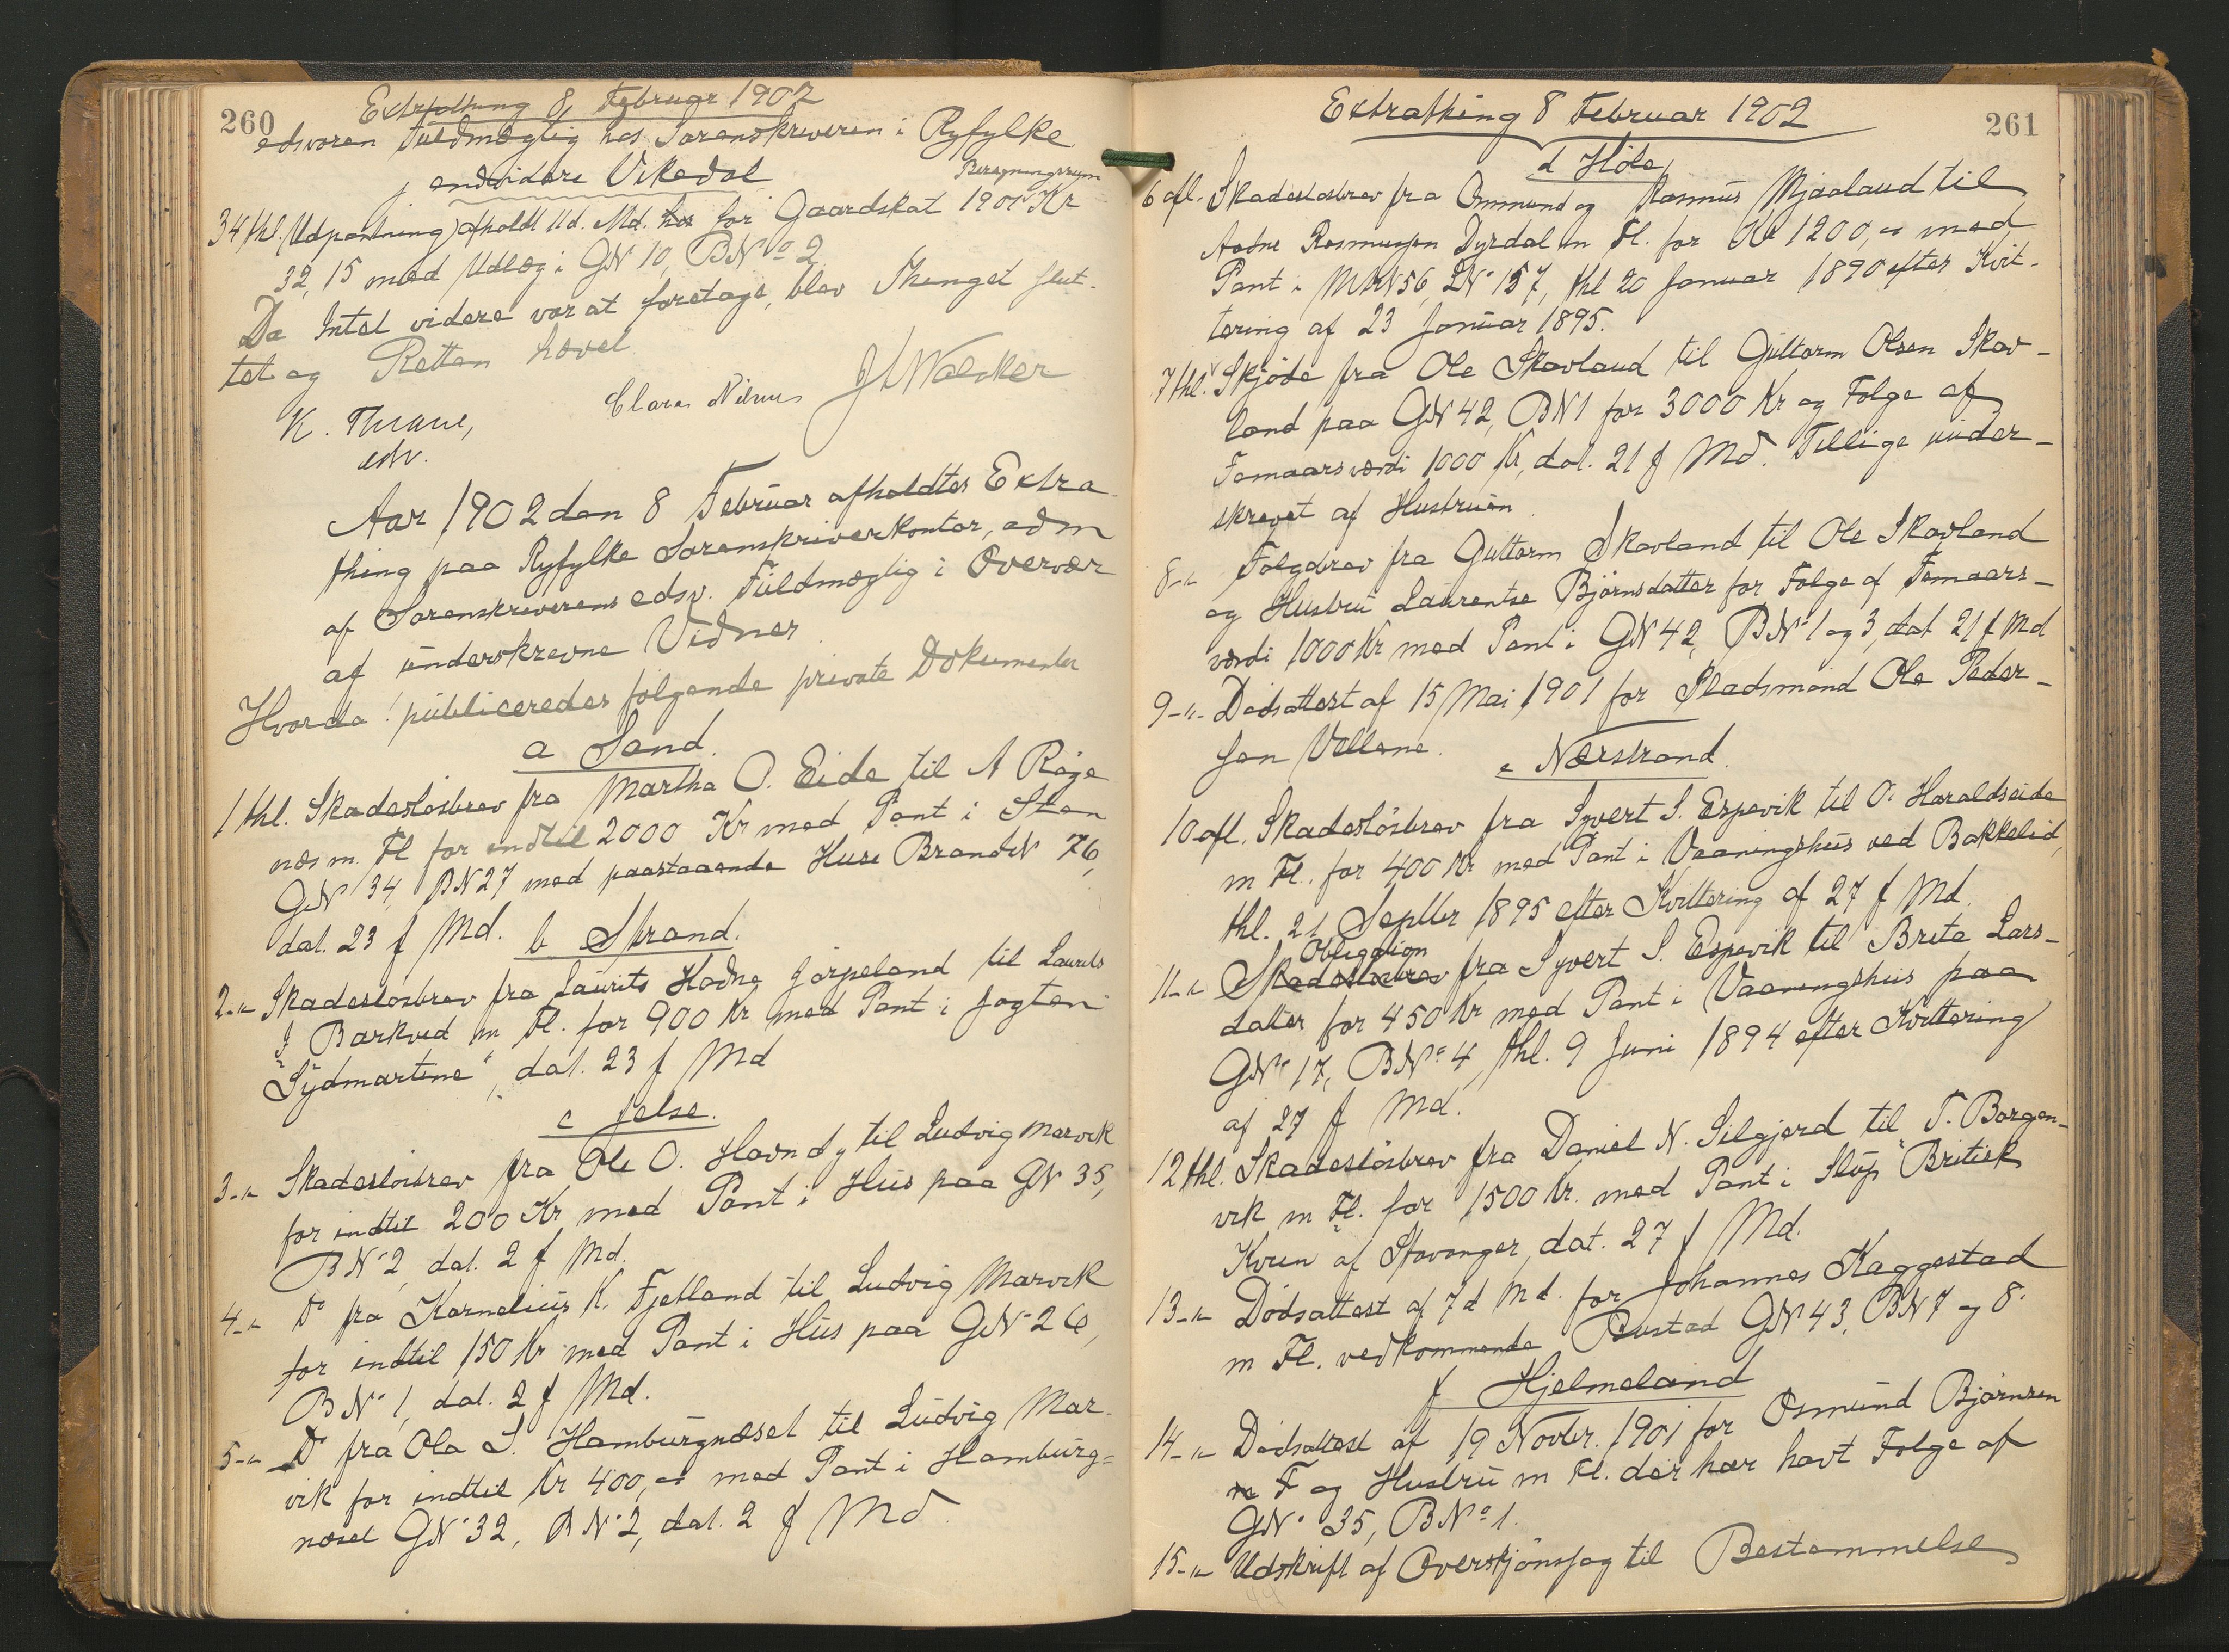 260
Extrathing 8 Februar 1902
edsvoren Fuldmægtig hos Sorenskriveren i Ryfylke
j endvidere Vikedal
34 thl. Udpantning afholdt 11 d. Md. for Gaardskat 1901 Kr
32,15 med Udlæg i GN 10, BNº 2
Da Intet videre var at foretage, blev Thinget slut-
tet og Retten hævet
K. Thrane,
edsv.
Aar 1902 den 8 Februar afholdtes Extra-
thing paa Ryfylke Sorenskriverkontor, adm
af Sorenskriverens edsv. Fuldmægtig i Overvær
af underskrevne Vidner
Hvorda: publiceredes følgende private Dokumenter
a Sand.
1 thl. Skadesløsbrev fra Martha O. Eide til A Røge
næs m. Fl for indtil 2000 Kr med Pant i Sten
GN 34, BN 27 med paastaaende Huse BrandN 76,
dat. 23 f Md.
b Strand.
2-"- Skadesløsbrev fra Laurits Hodne Jørpeland til Laurits
J Barkved m Fl. for 900 Kr med Pant i Jagten
"Sydmartine", dat. 23 f Md
c Jelse.
3-"- Skadesløsbrev fra Ole O. Havn dy til Ludvig Marvik
for indtil 200 Kr med Pant i Hus paa GN 35,
BN 2, dat. 2 f Md.
4-"- Dº fra Kornelius K. Fjetland til Ludvig Marvik
for indtil 150 Kr med Pant i Hus paa GN 26,
BN 1, dat. 2 f Md.
5-"- Dº fra Ola S. Hamburgnæset til Ludvig Mar-
vik for indtil Kr 400,00 med Pant i Hamburg=
næset GN 32, BN 2, dat. 2 f Md.
Extrathing 8 Februar 1902
261
d Höle
6 afl. Skadesløsbrev fra Ommund og Rasmus Mjaaland til
Aadne Rasmussen Dyrdal m Fl. for Kr 1200,00 med
Pant i MN 56, LN 157, thl 20 Januar 1890 efter Kvit-
tering af 23 Januar 1895.
7 thl. Skjöde fra Ole Skavland til Guttorm Olsen Skav-
land paa GN 42, BN 1 for 3000 Kr og Folge af
Femaarsværdi 1000 Kr, dat. 21 f Md. Tillige under-
skrevet af Hustruen.
8-"- Folgebrev fra Guttorm Skavland til Ole Skavland
og Hustru Laurentse Bjørnsdatter for Folge af Femaars-
værdi 1000 Kr med Pant i GN 42, BN 1 og 3, dat 21 f Md
9-"- Dødsattest af 15 Mai 1901 for Pladsmand Ole Peder-
sen Vallene.
e Nærstrand.
10 afl. Skadesløsbrev fra Syvert S. Espevik til O. Haraldseide
m Fl. for 400 Kr med Pant i Vaaningshus ved Bakkelid,
thl. 21 Septbr 1895 efter Kvittering af 27 f Md.
Obligation
11-"- Skadesløsbrev fra Syvert S. Espevik til Brita Lars-
datter for 450 Kr med Pant i Vaaningshus paa
GN 17, BNº 4, thl. 9 Juni 1894 efter Kvittering
af 27 f Md.
12 thl. Skadesløsbrev fra Daniel N. Silgjerd til T. Borgen-
vik m Fl. for 1500 Kr. med Pant i Slup "British
Kven af Stavanger, dat. 27 f Md.
13-"- Dødsattest af 7 d Md. for Johannes Kaggestad
m Fl. vedkommende Bustad GN 43, BN 7 og 8.
f Hjelmeland
14-"- Dødsattest af 19 Novbr. 1901 for Osmund Bjørnsen
F og Hustru m Fl. der har havt Folge af
GN 35, BNº 1.
15-"- Udskrift af Overskjönssag til Bestemmelse